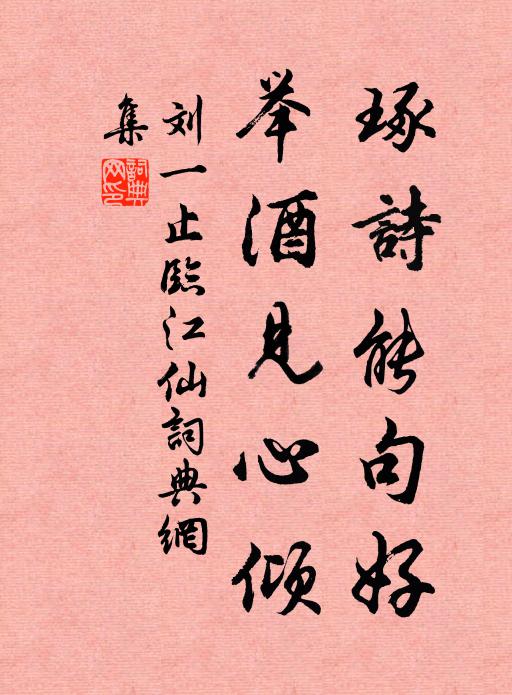 琢詩能句好
举酒見心傾
刘一止臨江仙詞典網
集
詞典网印